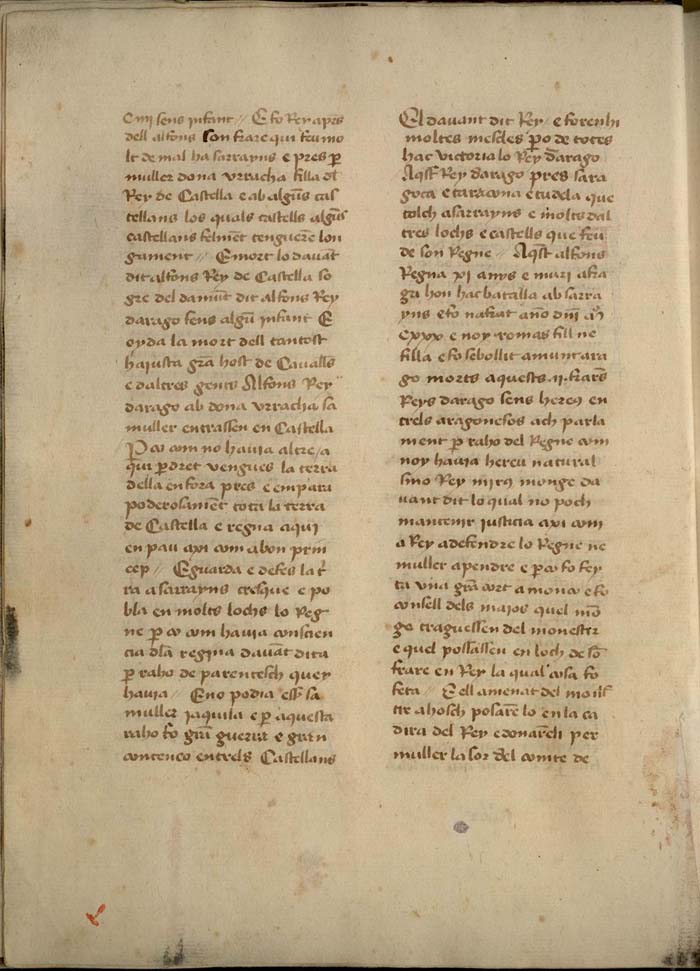 e mi sens infant // E fo Rey apres
dell alfons son frare qui feu mo
lt de mal ha sarrayns e pres p̄
muller dona vrracha filla dl̄
Rey de Castella e ab algūs cas
tellans los quals castells algūs
castellans felmēt tenguerē lon
gament // E mort lo dauāt
dit alfons Rey de Castella so
gre del damūt dit alfons Rey
darago sens algū infant E
oyda la mort dell tantost
haiusta grā host de Cauallˢ
e daltres gents Alfons Rey
darago ab dona vrracha sa
muller entrassen en Castella
P̄ ço com no hauia altre a
qui p̄ dret vengues la terra
della enfora pres e empara
poderosamēt tota la terra
de Castella e regna aqui
en pau axi com a bon prin
cep // E guarda e defes la t̄
ra a sarrayns cresque e po
bla en molts lochs lo Reg
ne p̄ ço com hauia conscien
cia dla regina dauāt dita
p̄ raho de parentesch que y
hauia // E no podia esš sa
muller jaquila e p̄ aquesta
raho fo grā guerra e gran
contenco entrels Castellans
El dauant dit Rey e foren hi
moltes mescles p̄o de totes
hac victoria lo Rey darago
Aqst̄ Rey darago pres sara
goça e taraçona e tudela que
tolch a sarrayns e molts dal
tres lochs e castells que feu
de son Regne // Aqst̄ alfons
Regna xi anys e muri a fra
ga hon hac batalla ab sarra
yns e fo nafrat año dñi Mº
cxxx e no y romas fill ne
filla e fo sebollit a muntara
go morts aquests .ij. frares
Reys darago sens hereu en
trels aragonesos ach parla
ment p̄ raho del Regne com
no y hauia hereu natural
sino Rey mirō monge da
uant dit lo qual no poch
mantenir justicia axi com
a Rey a defendre lo Regne ne
muller a pendre e p̄ ço fo fey
ta vna grā cort a monço e fo
consell dels maios quel mō
ge traguessen del monestir
e quel possassen en loch de sō
frare en Rey la qual cosa fo
feta // E ell amenat del mones
tir a hosch posarē lo en la ca
dira del Rey e donarēli per
muller la sor del comte de